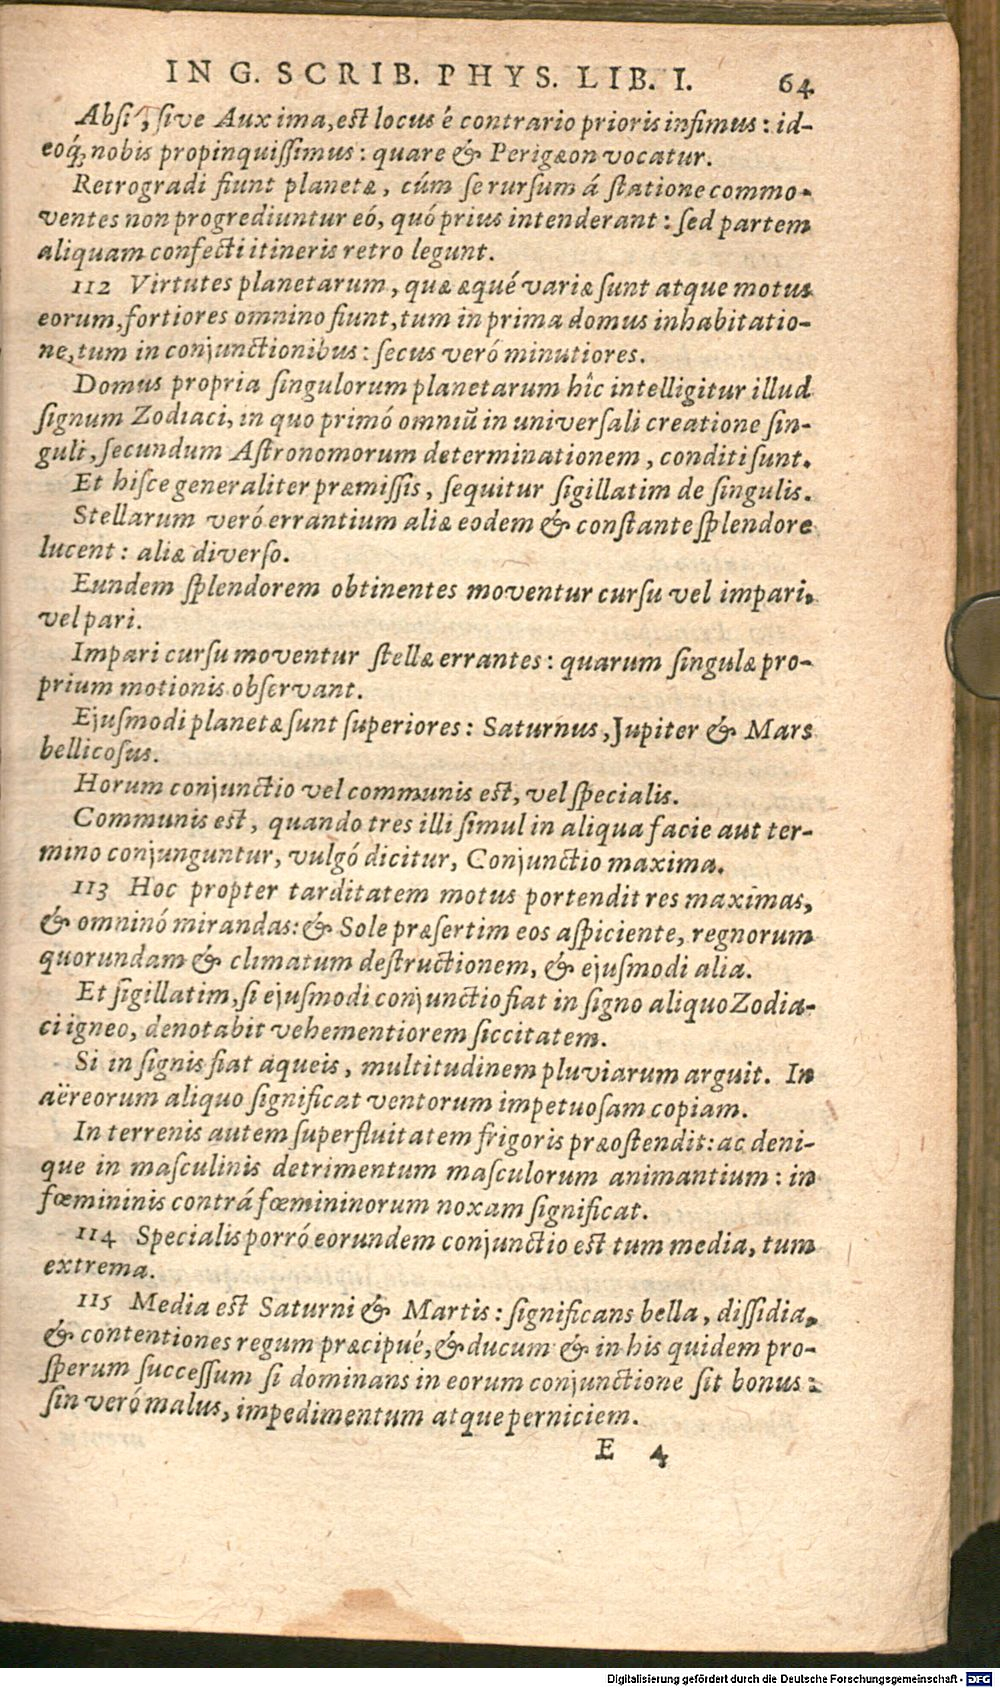 IN G. SCRIB. PHYS. LIB. I. 64
Absis, sive Auxima, est locus é contrario prioris infimus: id-
eoq́; nobis propinquissimus: quare & Perigæon vocatur.
Retrogradi fiunt planetæ, cúm se rursum á statione commo-
ventes non progrediuntur eó, quó prius intenderant: sed partem
aliquam confecti itineris retro legunt.
112 Virtutes planetarum, quæ æqué variæ sunt atque motus
eorum, fortiores omnino fiunt, tum in prima domus inhabitatio-
ne, tum in conjunctionibus: secus veró minutiores.
Domus propria singulorum planetarum hîc intelligitur illud
signum Zodiaci, in quo primó omniũ in universali creatione sin-
guli, secundum Astronomorum determinationem, conditi sunt.
Et hisce generaliter præmissis, sequitur sigillatim de singulis.
Stellarum veró errantium aliæ eodem & constante splendore
lucent: aliæ diverso.
Eundem splendorem obtinentes moventur cursu vel impari,
vel pari.
Impari cursu moventur stellæ errantes: quarum singulæ pro-
prium motionis observant.
Ejusmodi planetæ sunt superiores: Saturnus, Jupiter & Mars
bellicosus.
Horum conjunctio vel communis est, vel specialis.
Communis est, quando tres illi simul in aliqua facie aut ter-
mino conjunguntur, vulgó dicitur, Conjunctio maxima.
113 Hoc propter tarditatem motus portendit res maximas,
& omninó mirandas: & Sole præsertim eos aspiciente, regnorum
quorundam & climatum destructionem, & ejusmodi alia.
Et sigillatim, si ejusmodi conjunctio fiat in signo aliquo Zodia-
ci igneo, denotabit vehementiorem siccitatem.
Si in signis fiat aqueis, multitudinem pluviarum arguit. In
aëreorum aliquo significat ventorum impetuosam copiam.
In terrenis autem superfluitatem frigoris præostendit: ac deni-
que in masculinis detrimentum masculorum animantium: in
fœmininis contrá fœmininorum noxam significat.
114 Specialis porró eorundem conjunctio est tum media, tum
extrema.
115 Media est Saturni & Martis: significans bella, dissidia,
& contentiones regum præcipué, & ducum & in his quidem pro-
sperum successum si dominans in eorum conjunctione sit bonus:
sin veró malus, impedimentum atque perniciem.
E 4
Digitalisierung gefördert durch die Deutsche Forschungsgemeinschaft - DFG